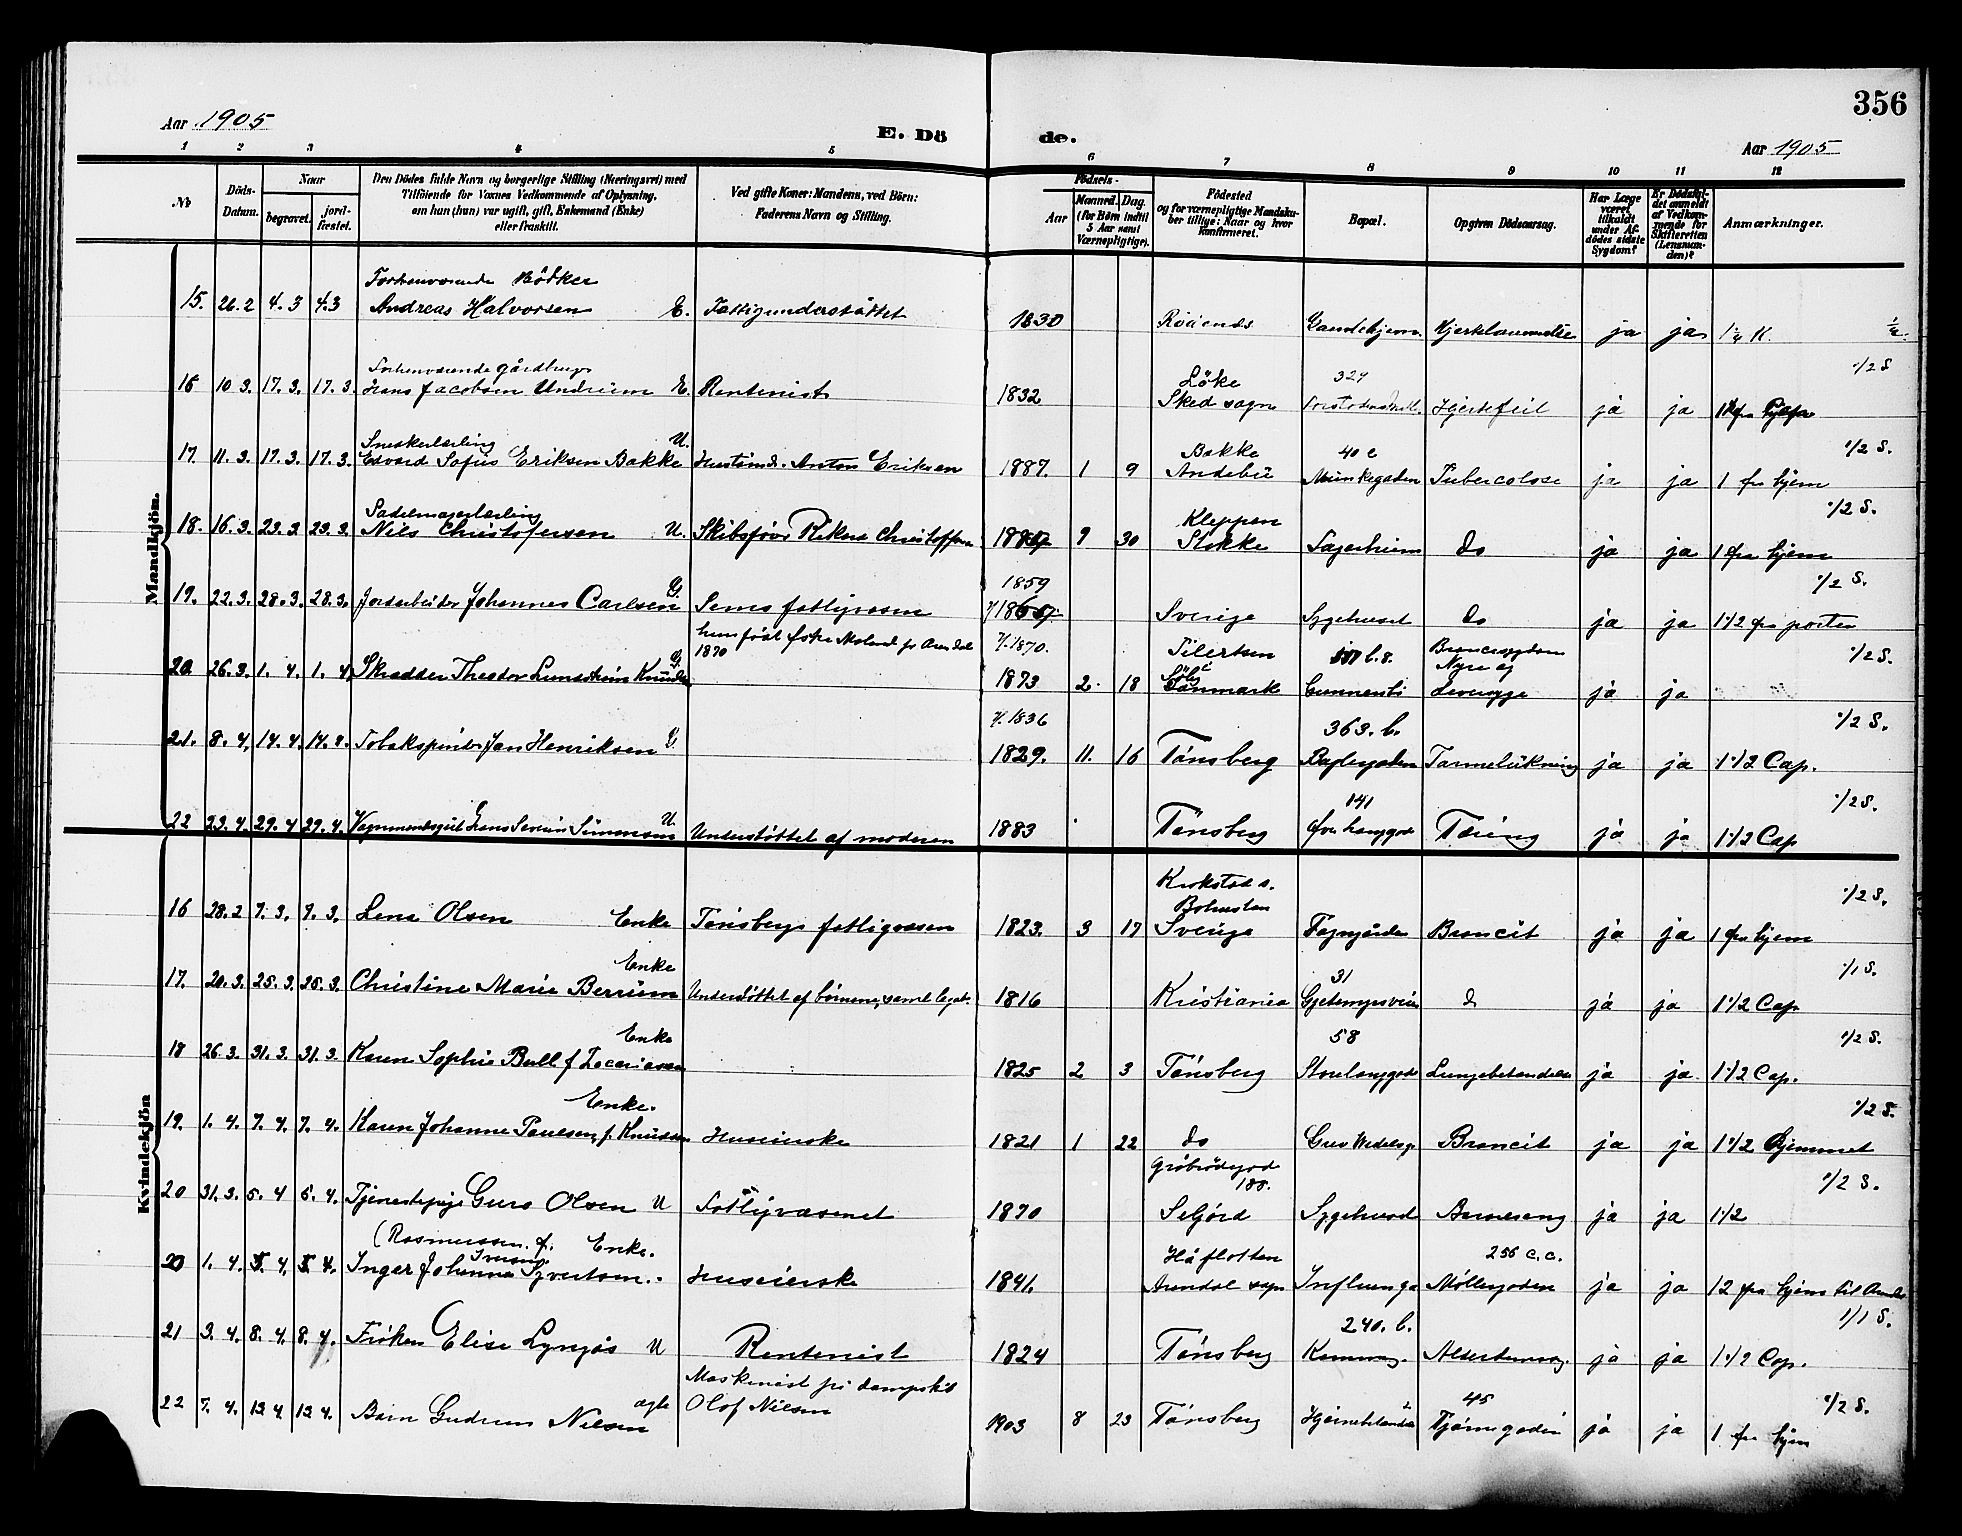 356
Aar 1905
E. Döde.
Aar 1905
1 2 3 4 5 6 7 8 9 10 11 12
No
Döds-Datum.
Naar
begravet.
jordfæstet.
Den Dödes fulde Navn og borgerlige Stilling (Næringsvei) med
Tilföiende for Voxnes Vedkommende af Oplysning,
om han (hun) var ugift, gift, Enkemand (Enke)
eller fraskilt.
Ved gifte Koner: Mandens, ved Börn:
Faderens Navn og Stilling.
Födsels-
Aar
Maaned. Dag.
(for Börn indtil 5 Aar samt Værnepligtige).
Födested
og for værnepligtige Mandskaber tillige: Naar og hvor konfirmeret.
Bopæl.
Opgiven Dödsaarsag.
Har Læge været tilkaldt under Afdödes sidste Sygdom?
Er Dödsfaldet anmeldt af Vedkommende for Skifteretten (Lensmanden)?
Anmærkninger.
Mandkjön.
15. 26.2 4.3 4.3 Forhenværende Bödker
Andreas Halvorsen E. Fattigunderstöttet 1830 Gamlehjem. Hjertelammelse ja ja
16 10.3. 17.3. 17.3. Forhenværende gårdbruger
Hans Jacobsen Undrum E. Rentenist 1832 Löke Sked sogn 324 Hjertefeil ja ja 1/2 S
17. 11.3. 17.3. 17.3. Snekkerlærling U.
Edvard Sofus Eriksen Bakke Anton Eriksen 1887. 1 9 Bakke Andebu 40 c Munkegaden Tubercolose ja ja 1 fra hjem 1/2 S.
18. 16.3. 23.3 23.3. Sadelmagerlærling
Nils Christofersen U. Skibsförer Christoffersen 9 30 Kleppen Stokke Do ja ja 1 fra hjem 1/2 S.
19. 22.3. 28.3. 28.3. Jordarbeider Johannes Carlsen G. Sems fattigvæsen 1859 Sverige Sygehuset do ja ja 1 1/2 fra porten 1/2 S.
20 26.3. 1.4. 1.4 Skrædder Theodor G.
1870 1873 2. 18 Danmark Nyre og ja ja 1/2 S.
21. 8.4. 14.4. 14.4. Jan Henriksen 1836 1829. 11. 16 Tönsberg 363.b. Baglergaden Tarmelukning ja ja 1 1/2 Cap. 1/2 S.
22 23.4. 29.4 29.4. Hans Severin Simonsen U. Understöttet af moderen 1883 Tönsberg 141 Tæring ja ja 1 1/2 Cap 1/2 S.
Kvindekjön
16 28.2 7.3. 7.3. Lena Olsen Enke Tönsbergs fattigvæsen 1823. 3 17 Krokstad s. Sverige Broncit ja ja 1 fra hjem 1/2 S.
17. 20.3. 25.3. 25.3. Christine Marie Berrum Enke Understöttet af börnene, samt legat. 1816 Kristiania 31 do ja ja 1 1/2 Cap 1/1 S.
18 26.3. 31.3. 31.3. Karen Sophie Bull f Zacariasen Enke 1825 2 3 Tönsberg 58 Storelanggade Lungebetændelse ja ja 1 1/2 Cap. 1/2 S.
19. 1.4. 7.4. 7.4. Karen Johanne Paulsen, f. Knudsen Enke. Huseierske 1821 1 22 do Grev Wedelsg. Broncit ja ja 1 1/2 hjemmet 1/2 S.
20 31.3. 5.4 5.4. Tjenestepige Guro Olsen U Fattigvæsenet 1870 188. Seljord Sygehuset Barneseng ja ja 1 1/2 1/2 S.
20 1.4. 5.4. 5.4. (Rasmussen f. Enke.
Inger Johanne Syvertsen. Huseierske 1841. Arendal sogn Influenza 256 c.c. Möllegaden ja ja 1/2 fra hjem til 1/2 S.
21 3.4. 8.4. 8.4. Fröken Elise Lynjös U Rentenist 1824 Tönsberg 240.b. ja ja 1 1/2 Cap. 1/1 S.
22 7.4. 13.4. 13.4. Barn Gudrun Nielsen ægte Maskinist på dampskib
Olof Nielsen 1903 8 23 Tönsberg Hjernebetændelse 45 Tjömegaden ja ja 1 fra hjem 1/2 S.